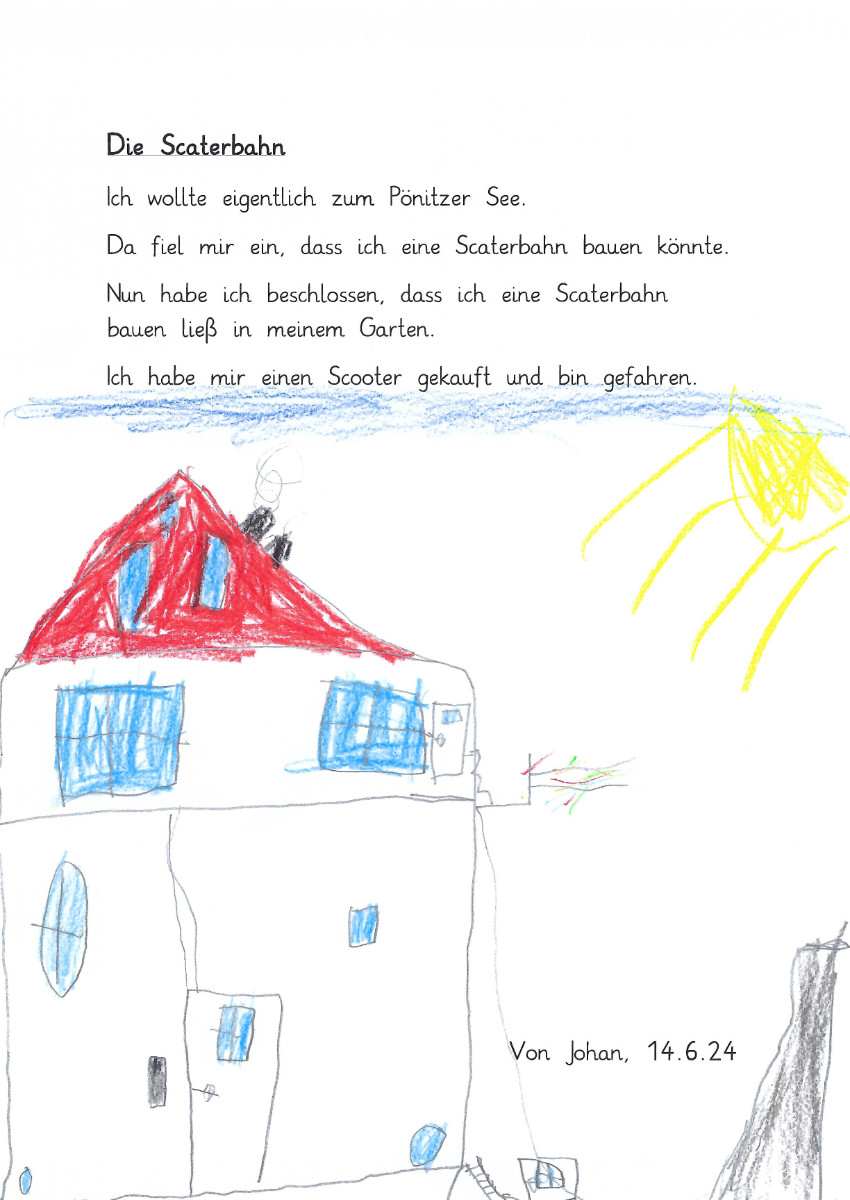 Die Scaterbahn
Ich wollte eigentlich zum Pönitzer See.
Da fiel mir ein, dass ich eine Scaterbahn bauen könnte.
Nun habe ich beschlossen, dass ich eine Scaterbahn
bauen ließ in meinem Garten.
Ich habe mir einen Scooter gekauft und bin gefahren.
Von Johan, 14.6.24